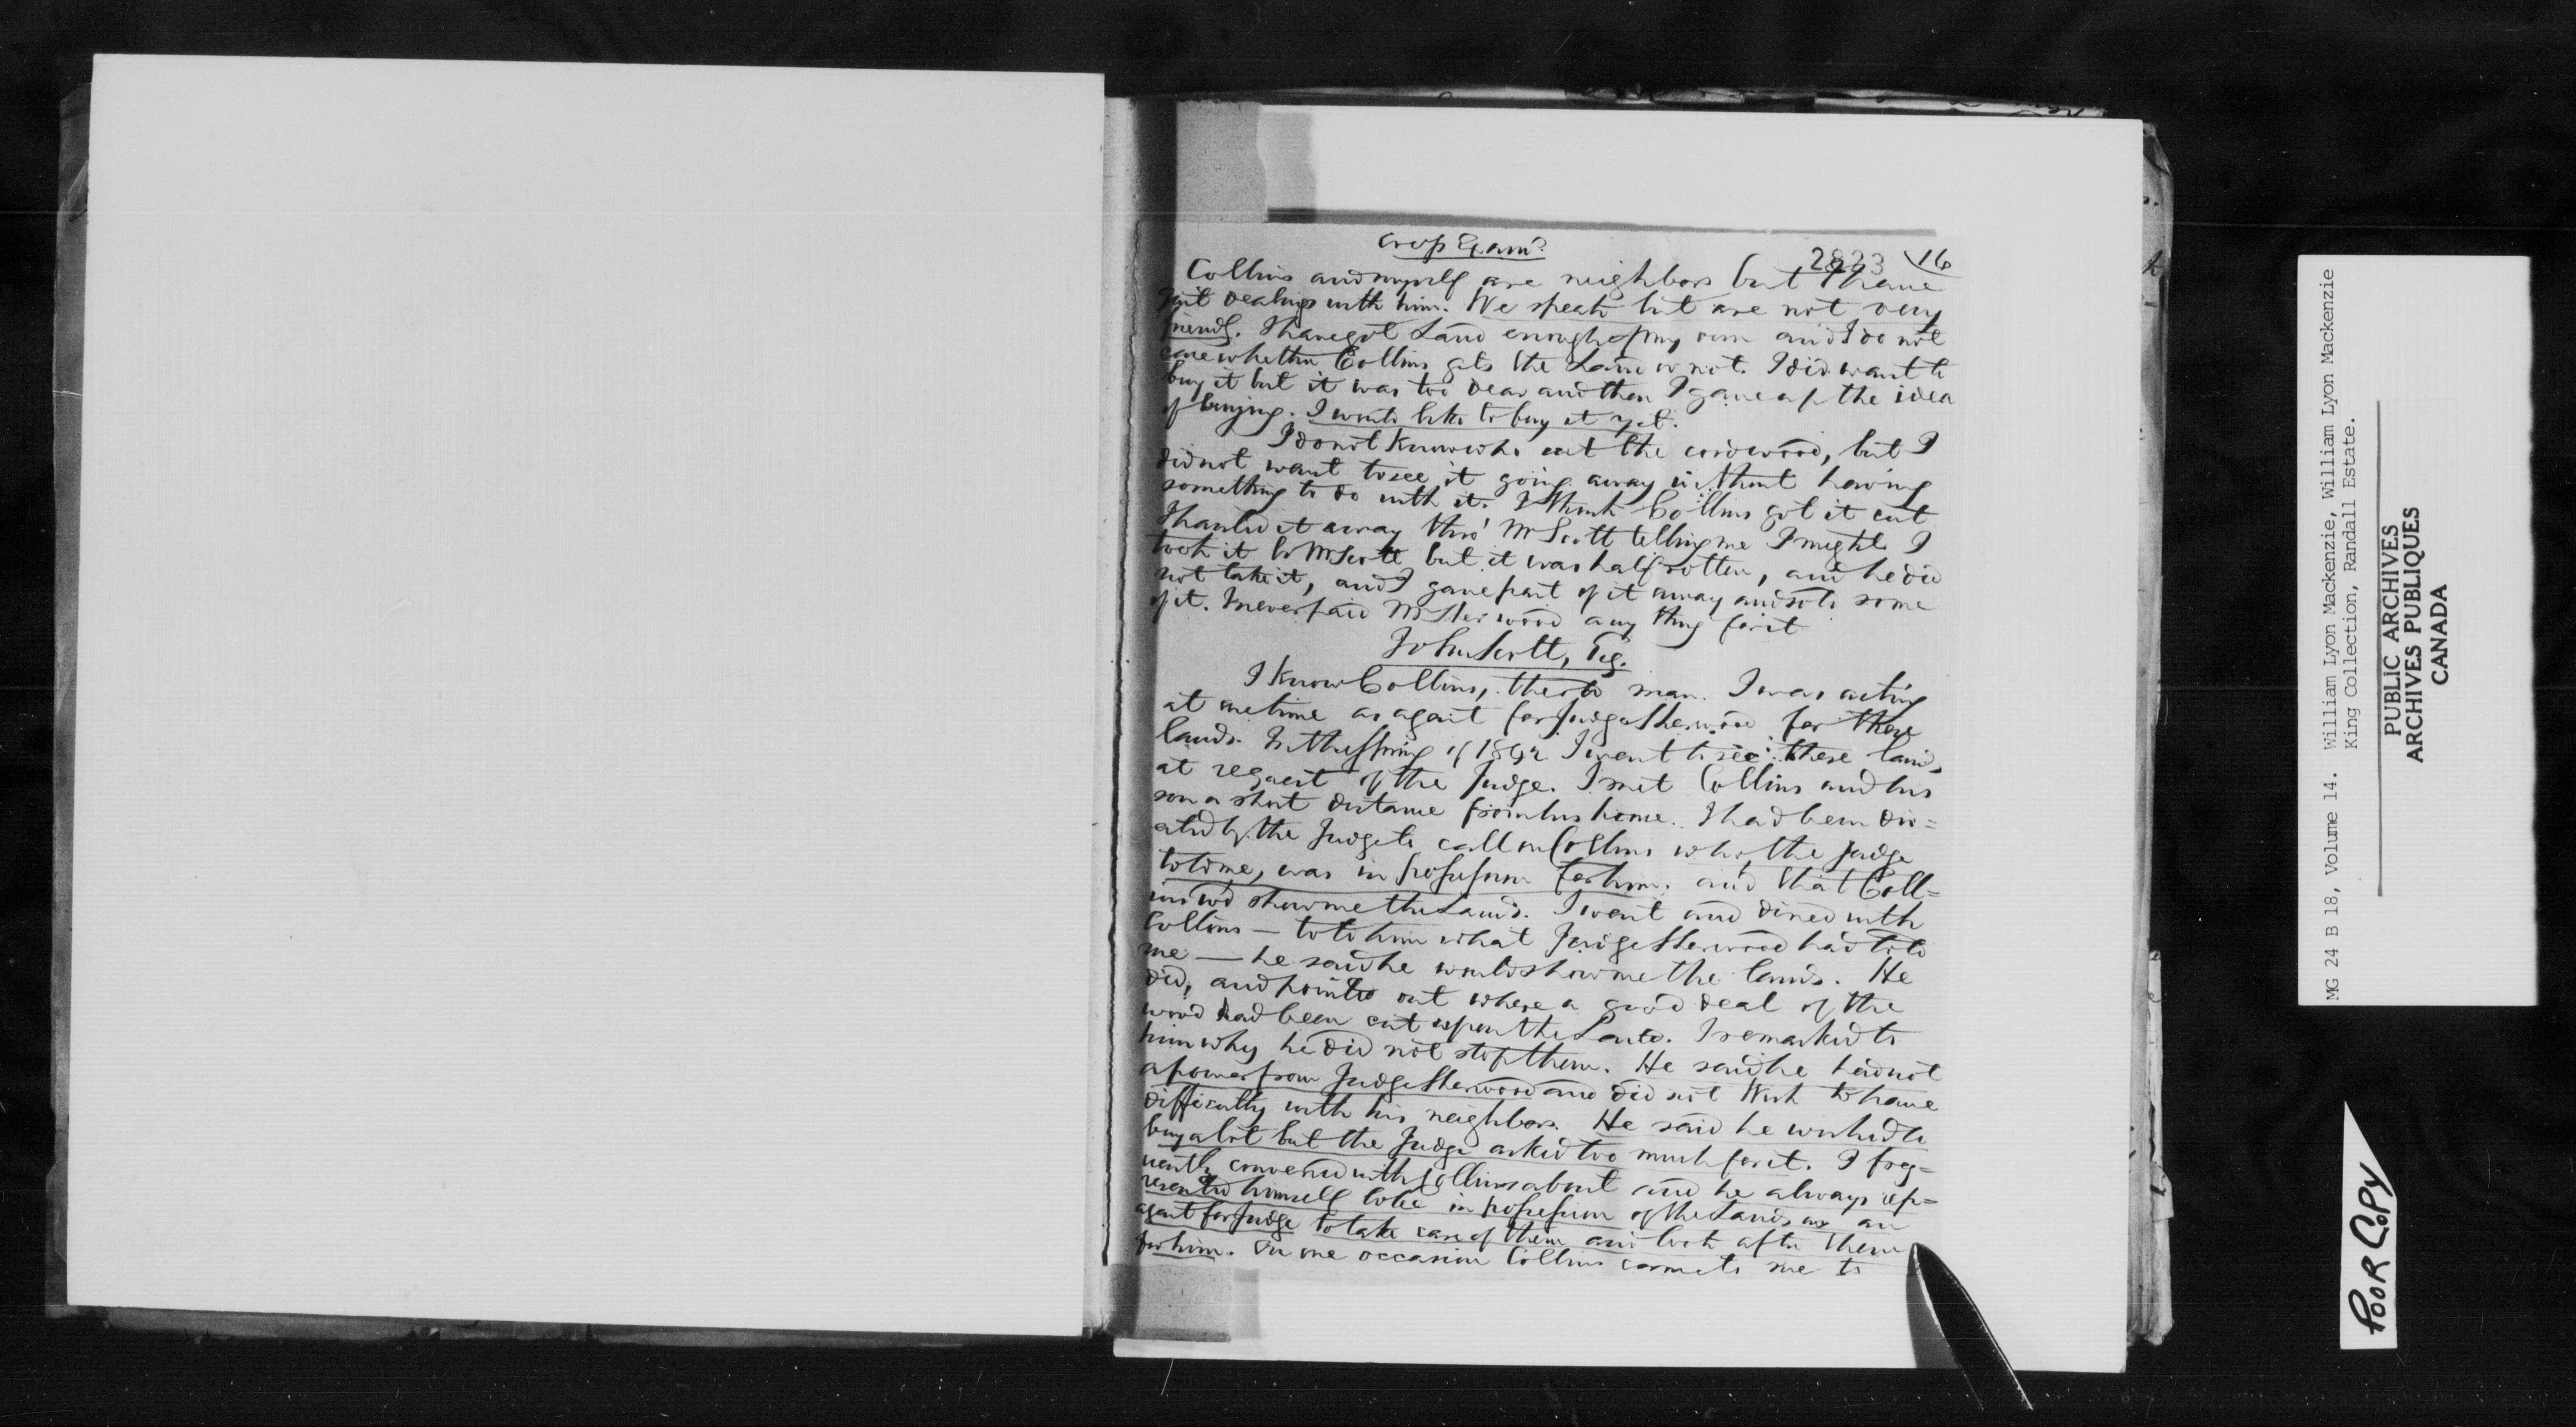 Cross Exam?
2823 16
Collins and myself are neighbors but I have
quit dealings with him. We speak but are not very
friendf. I have got Land enough of my own and I do not
care whether Collins gets the Land or not. I did want to
buy it but it was too dear and then I gave up the idea
of buying. I would like to buy it yet.
I do not know who cut the cordwood, but I
did not want to see it going away without having
something to do with it. I think Collins got it cut
I hauled it away thro' Mr Scott telling me I might I
took it to Mr Scott but it was half rotten, and he did
not take it, and I gave part of it away and sold some
of it. I never paid Mr Sherwood any thing for it
John Scott,
I know Collins, the old man. I was acting
at one time as agent for Judge Sherwood for these
lands. In the Spring of 1842 I went to see these lands
at request of the Judge. I met Collins and his
son a short distance from his home. I had been dir=
ected by the Judge to call on Collins who, the Judge
told me, was in possession for him, and that Coll=
ins wd show me the Lands. I went and dined with
Collins — told him what Judge Sherwood had told
me — he said he would show me the lands. He
did, and pointed out where a good deal of the
wood had been cut upon the Lands. I remarked to
him why he did not stop them. He said he had not
a power from Judge Sherwood and did not Wish to have
difficulty with his neighbors. He said he wished to
buy a lot but the Judge asked too much for it. I freq=
uently conversed with Collins about and he always rep=
resented himself to be in possession of the Lands as an
agent for Judge to take care of them and look after them
for him. On one occasion Collins came to me to
MG 24 B 18, Volume 14. William Lyon Mackenzie, William Lyon Mackenzie
King Collection, Randall Estate.
PUBLIC ARCHIVES
ARCHIVES PUBLIQUES
CANADA
POOR COPY